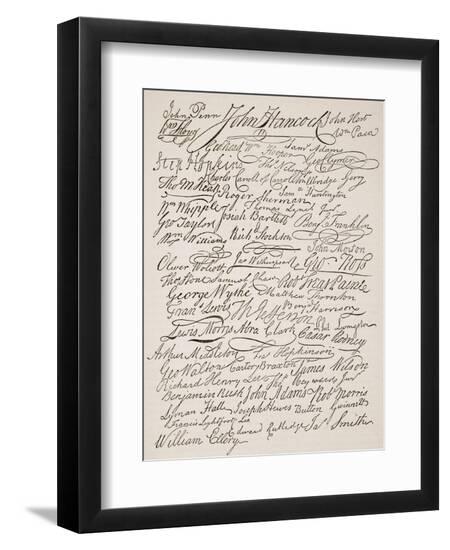 John Penn John Hancock John Hart
Wm Paca
Geo Read Wm Hooper Sam Adams
Step Hopkins Thos Nelson Geo Clymer
Charles Carroll of Carrollton Elbridge Gerry
Tho M:Kean Roger Sherman Sam Huntington
Wm Whipple Thomas Lynch Jur
Geo Taylor Josiah Bartlett Benj Franklin
Wm Williams Rich Stockton
John Morton
Oliver Wolcott Jno Witherspoon Geo Ross
Thos Stone Samuel Chase Rob Treat Paine
George Wythe Matthew Thornton
Frans Lewis Th Jefferson Benj Harrison
Lewis Morris Abra Clark Cæsar Rodney
Phil Livingston
Arthur Middleton Fras Hopkinson
Geo Walton Carter Braxton James Wilson
Richard Henry Lee Thos Heyward Junr
Benjamin Rush John Adams Rob Morris
Lyman Hall Joseph Hewes Button Gwinnett
Francis Lightfoot Lee
William Ellery Edward Rutledge Jas Smith